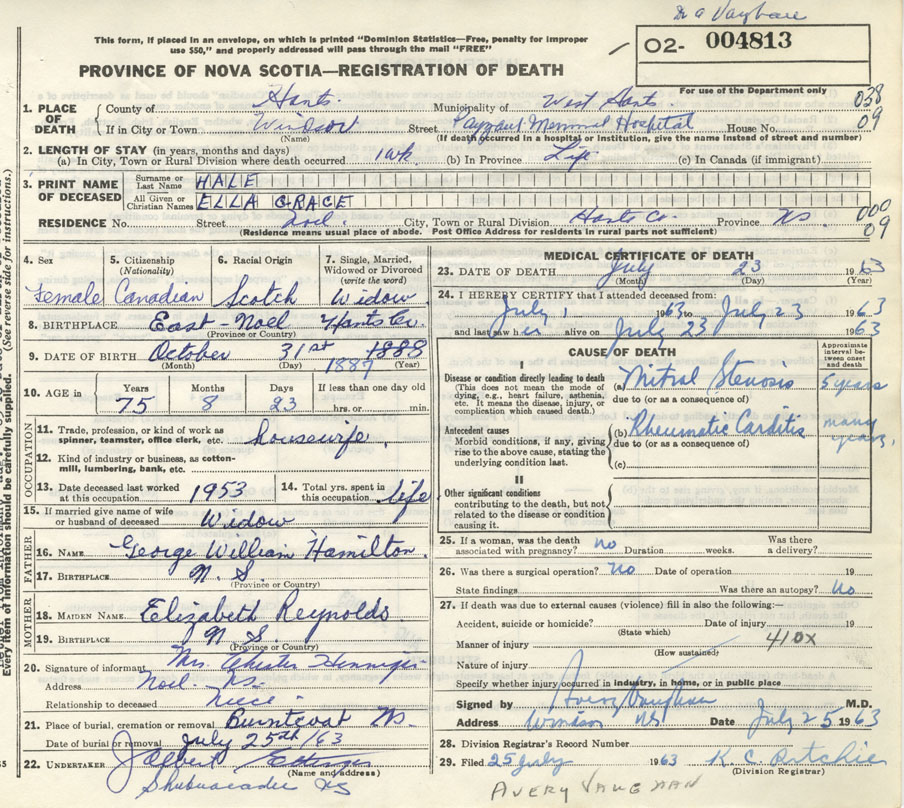 Dr A Vaughan
This form, if placed in an envelope, on which is printed "Dominion Statistics—Free, penalty for improper
use $50," and properly addressed will pass through the mail "FREE"
O2- 004813
PROVINCE OF NOVA SCOTIA—REGISTRATION OF DEATH
For use of the Department only
1. PLACE OF DEATH County of Hants. Municipality of West Hants. 038
If in City or Town Windsor Street Payzant Memorial Hospital House No. 09
(Name) (If death occurred in a hospital or institution, give the name instead of street and number)
2. LENGTH OF STAY (in years, months and days)
(a) In City, Town or Rural Division where death occurred 1 wk. (b) In Province Life (c) In Canada (if immigrant)
3. PRINT NAME OF DECEASED Surname or Last Name HALE
All Given or Christian Names ELLA GRACE
RESIDENCE No. Street Noel. City, Town or Rural Division Hants Co. Province NS 000
(Residence means usual place of abode. Post Office Address for residents in rural parts not sufficient) 09
4. Sex 5. Citizenship (Nationality) 6. Racial Origin 7. Single, Married, Widowed or Divorced (write the word)
Female Canadian Scotch Widow
8. BIRTHPLACE East-Noel Hants Co.
(Province or Country)
9. DATE OF BIRTH October 31st 1888
(Month) (Day) 1887 (Year)
10. AGE in Years Months Days If less than one day old
75 8 23 hrs. or min.
OCCUPATION
11. Trade, profession, or kind of work as
spinner, teamster, office clerk, etc. housewife.
12. Kind of industry or business, as cotton-
mill, lumbering, bank, etc.
13. Date deceased last worked at this occupation 1953 14. Total yrs. spent in this occupation life
15. If married give name of wife
or husband of deceased Widow
FATHER
16. NAME George William Hamilton.
17. BIRTHPLACE N. S.
(Province or Country)
MOTHER
18. MAIDEN NAME Elizabeth Reynolds
19. BIRTHPLACE N S.
(Province or Country)
20. Signature of informant Mrs. Chester Hennigar
Address Noel. NS.
Relationship to deceased Niece.
21. Place of burial, cremation or removal Burntcoat NS.
Date of burial or removal July 25th/63
22. UNDERTAKER J Albert
(Name and address)
Shubenacadie NS
MEDICAL CERTIFICATE OF DEATH
23. DATE OF DEATH July 23 1963
(Month) (Day) (Year)
24. I HEREBY CERTIFY that I attended deceased from:
July 1 1963 to July 23 1963
and last saw her alive on July 23 1963
CAUSE OF DEATH
Approximate interval between onset and death
I
Disease or condition directly leading to death
(This does not mean the mode of
dying, e.g., heart failure, asthenia,
etc. It means the disease, injury, or
complication which caused death.)
(a) Mitral Stenosis 5 years
due to (or as a consequence of)
Antecedent causes
Morbid conditions, if any, giving
rise to the above cause, stating the
underlying condition last.
(b) Rheumatic Carditis many years.
due to (or as a consequence of)
(c)
II
Other significant conditions
contributing to the death, but not
related to the disease or condition
causing it.
25. If a woman, was the death associated with pregnancy? no Duration weeks. Was there a delivery?
26. Was there a surgical operation? no Date of operation 19
State findings Was there an autopsy? No
27. If death was due to external causes (violence) fill in also the following:—
Accident, suicide or homicide? Date of injury 19
(State which)
410X
Manner of injury
(How sustained)
Nature of injury
Specify whether injury occurred in industry, in home, or in public place
Signed by Avery Vaughan M.D.
Address Windsor NS Date July 25 1963
28. Division Registrar's Record Number
29. Filed 25 July 1963 K. C. Ritchie
(Division Registrar)
AVERY VAUGHAN
Every item of information should be carefully supplied. (See reverse side for instructions.)